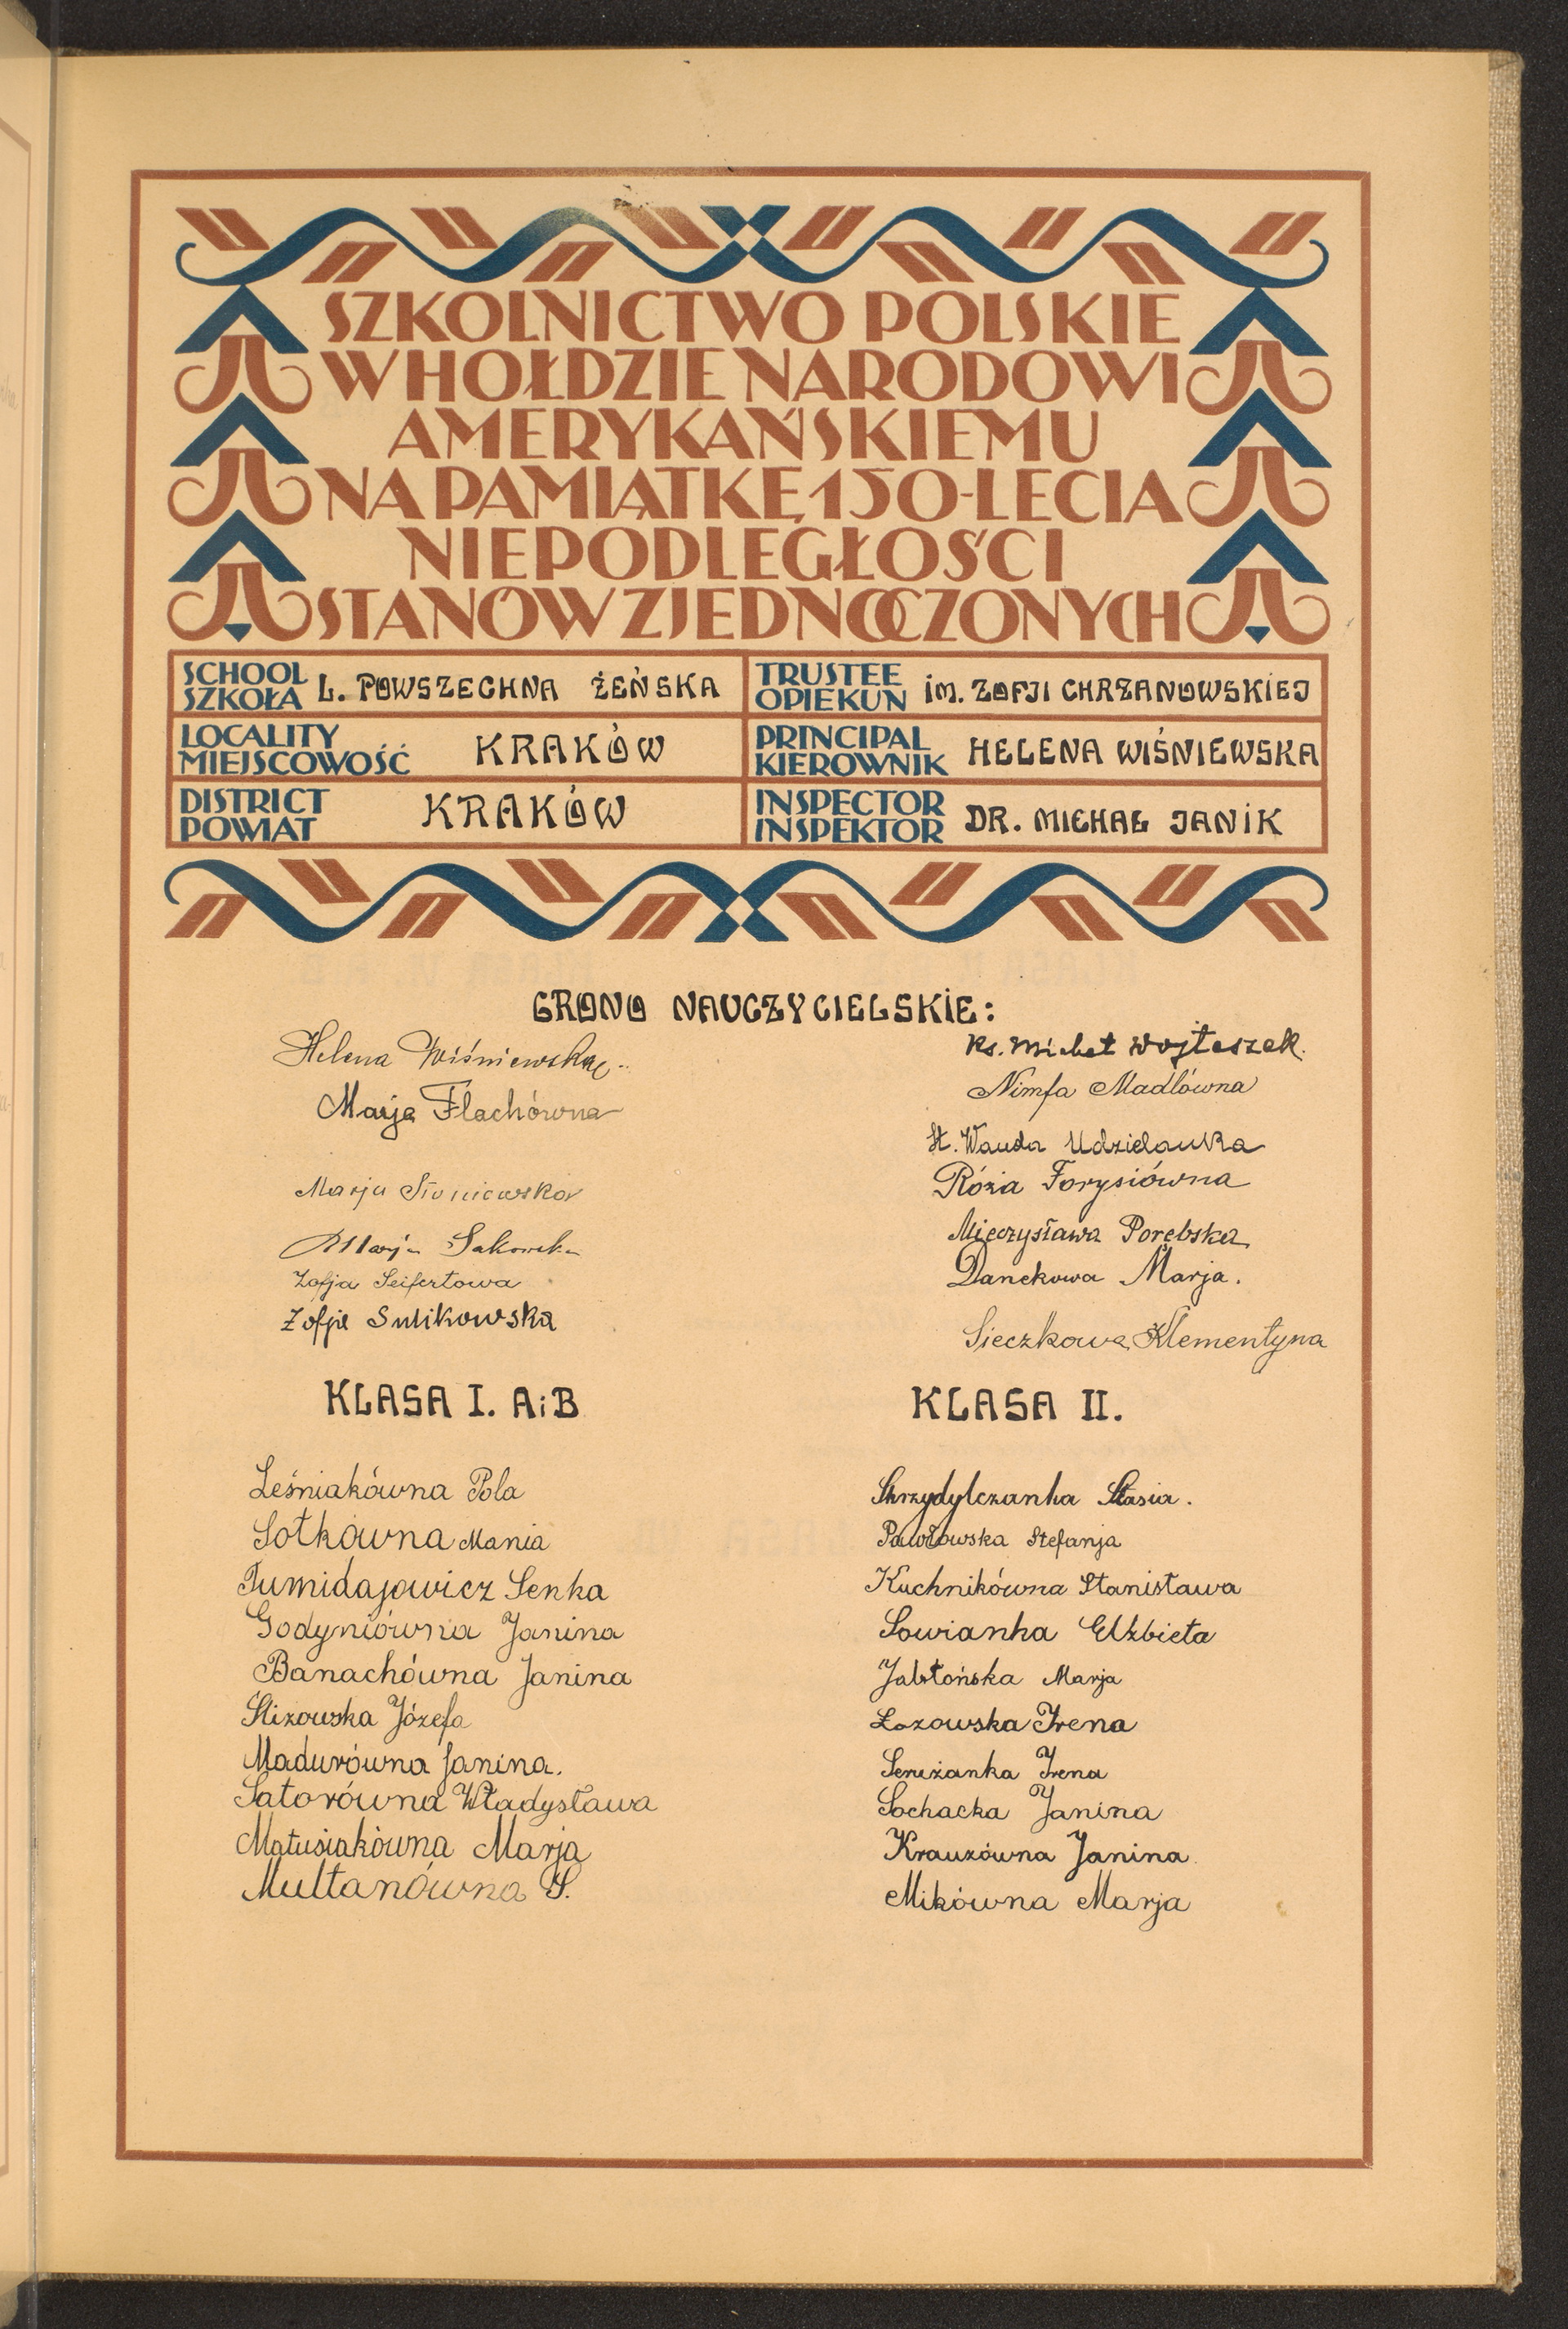 SZKOLNICTWO POLSKIE
W HOŁDZIE NARODOWI
AMERYKAŃSKIEMU
NA PAMIĄTKĘ 150-LECIA
NIEPODLEGŁOŚCI
STANÓW ZJEDNOCZONYCH
SCHOOL
SZKOŁA L. POWSZECHNA ŻEŃSKA
TRUSTEE
OPIEKUN IM. ZOFJI CHRZANOWSKIEJ
LOCALITY
MIEJSCOWOŚĆ KRAKÓW
PRINCIPAL
KIEROWNIK HELENA WIŚNIEWSKA
DISTRICT
POWIAT KRAKÓW
INSPECTOR
INSPEKTOR DR. MICHAŁ JANIK
GRONO NAUCZYCIELSKIE:
Helena Wiśniewska
Marja Flachówna
Marja
Marja
Zofja Seifertowa
Zofja Sulikowska
Ks. Michał Wojteszek.
Nimfa Madlówna
St. Wanda Udzielanka
Róża Forysiówna
Mieczysława Porębska
Danekowa Marja.
Sieczkowa Klementyna
KLASA I. A i B
Leśniakówna Pola
Sotkówna Mania
Tumidajowicz Senka
Godyniówna Janina
Banachówna Janina
Slizowska Józefa
Madurówna Janina.
Satorówna Władysława
Matusiakówna Marja
Multanówna S.
KLASA II.
Skrzydylczanka Stasia.
Pawłowska Stefanja
Kuchnikówna Stanisława
Sowianka Elżbieta
Jabłońska Marja
Łozowska Irena
Irena
Sochacka Janina
Krauzówna Janina
Mikówna Marja